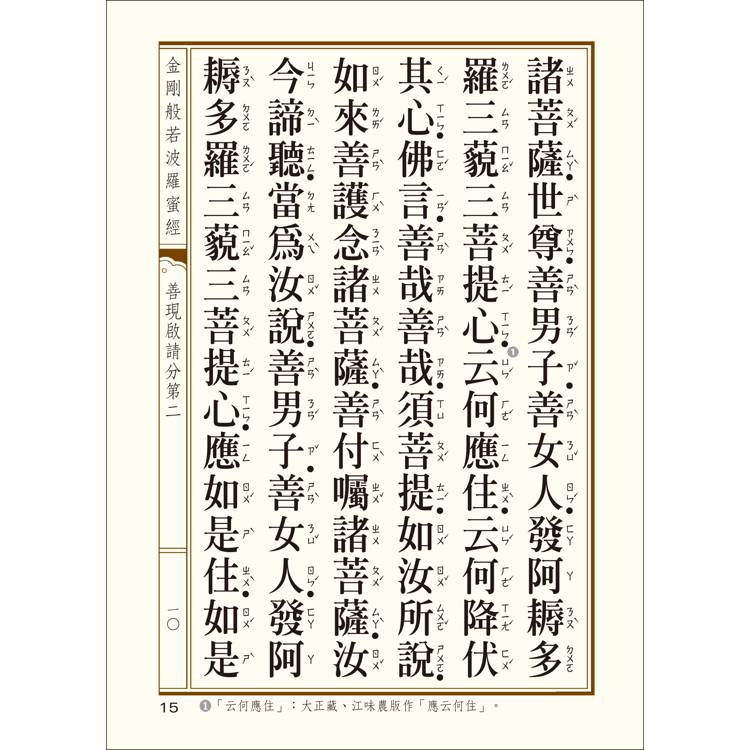 諸菩薩世尊善男子善女人發阿耨多
羅三藐三菩提心①云何應住云何降伏
其心佛言善哉善哉須菩提如汝所說
如來善護念諸菩薩善付囑諸菩薩汝
今諦聽當為汝說善男子善女人發阿
耨多羅三藐三菩提心應如是住如是
金剛般若波羅蜜經
善現啟請分第二
一〇
15
①「云何應住」：大正藏、江味農版作「應云何住」。